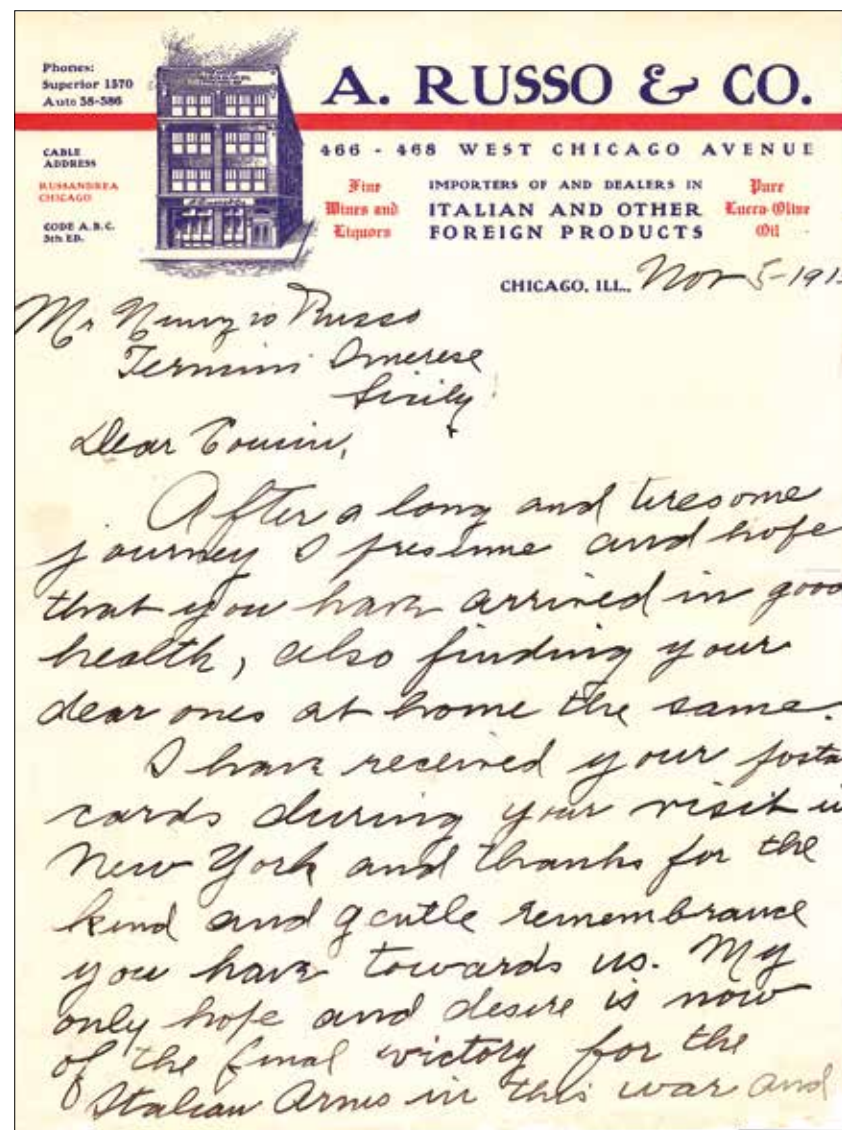 Phones:
Superior 1570
Auto 38-386
A. RUSSO & CO.
CABLE
ADDRESS
RUSSANDREA
CHICAGO
CODE A.B.C.
5th ED.
466 - 468 WEST CHICAGO AVENUE
Fine
Wines and
Liquors
IMPORTERS OF AND DEALERS IN
ITALIAN AND OTHER
FOREIGN PRODUCTS
Pure
Lucca Olive
Oil
CHICAGO, ILL., Nov 5-191
Mr Nunzio Russo
Termini Imerese
Sicily
Dear Cousin,
After a long and tiresome
journey I presume and hope
that you have arrived in good
health, also finding your
dear ones at home the same.
I have received your posta
cards during your visit in
New York and thanks for the
kind and gentle remembrance
you have towards us. My
only hope and desire is now
of the final victory for the
Italian Arms in this war and